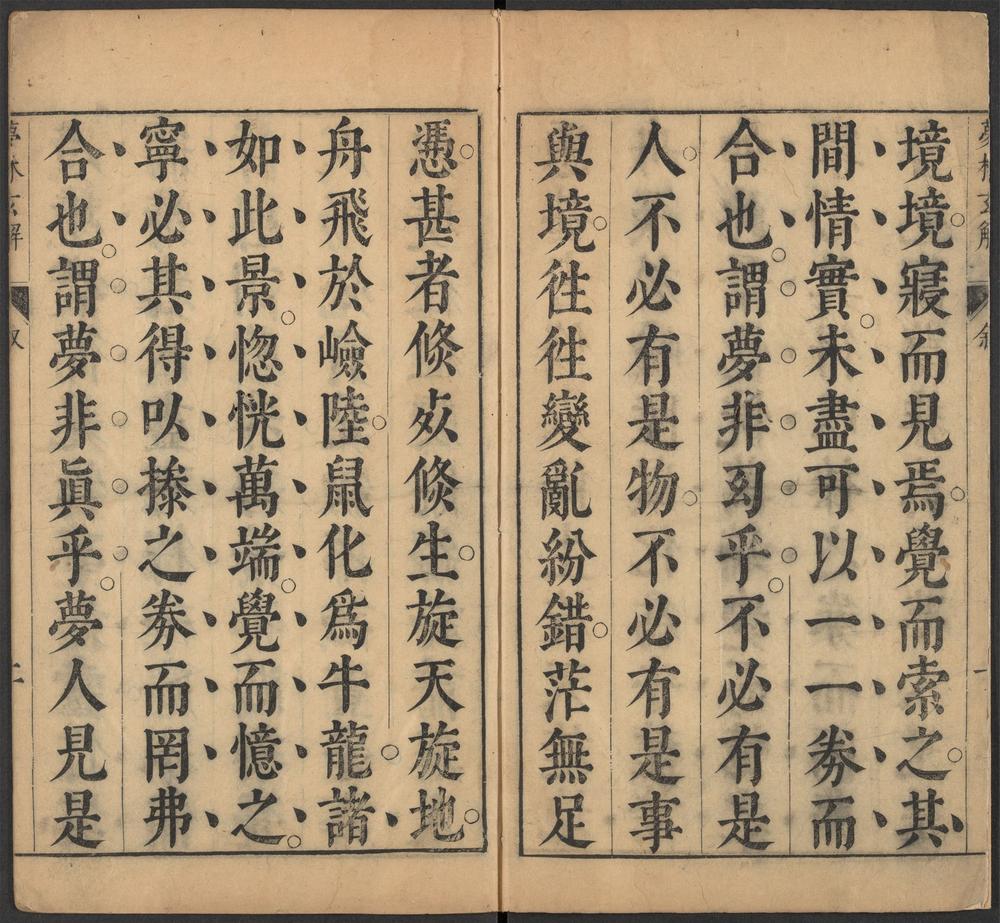 夢林玄解 叙 一
境境寢而見焉覺而索之其
間情實未盡可以一一劵而
合也謂夢非幻乎不必有是
人不必有是物不必有是事
與境徃徃變亂紛錯茫無足
憑甚者倐死倐生旋天旋地
舟飛於嶮陸鼠化爲牛龍諸
如此景惚恍萬端覺而憶之
寧必其得以掺之劵而罔弗
合也謂夢非眞乎夢人見是
夢林玄解 叙 二